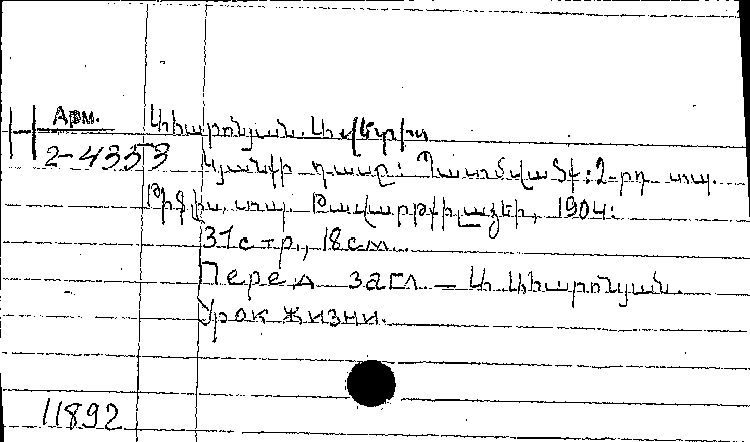 Арм.
2-4353
Ահարոնյան Ավետիս
Կյանքի դասը: Պատմվածք: 2-րդ տպ.
Թիֆլիս, տպ.
1904:
31 стр., 18 см.
Перед загл — Ա. Ահարոնյան.
Урок жизни.
11892